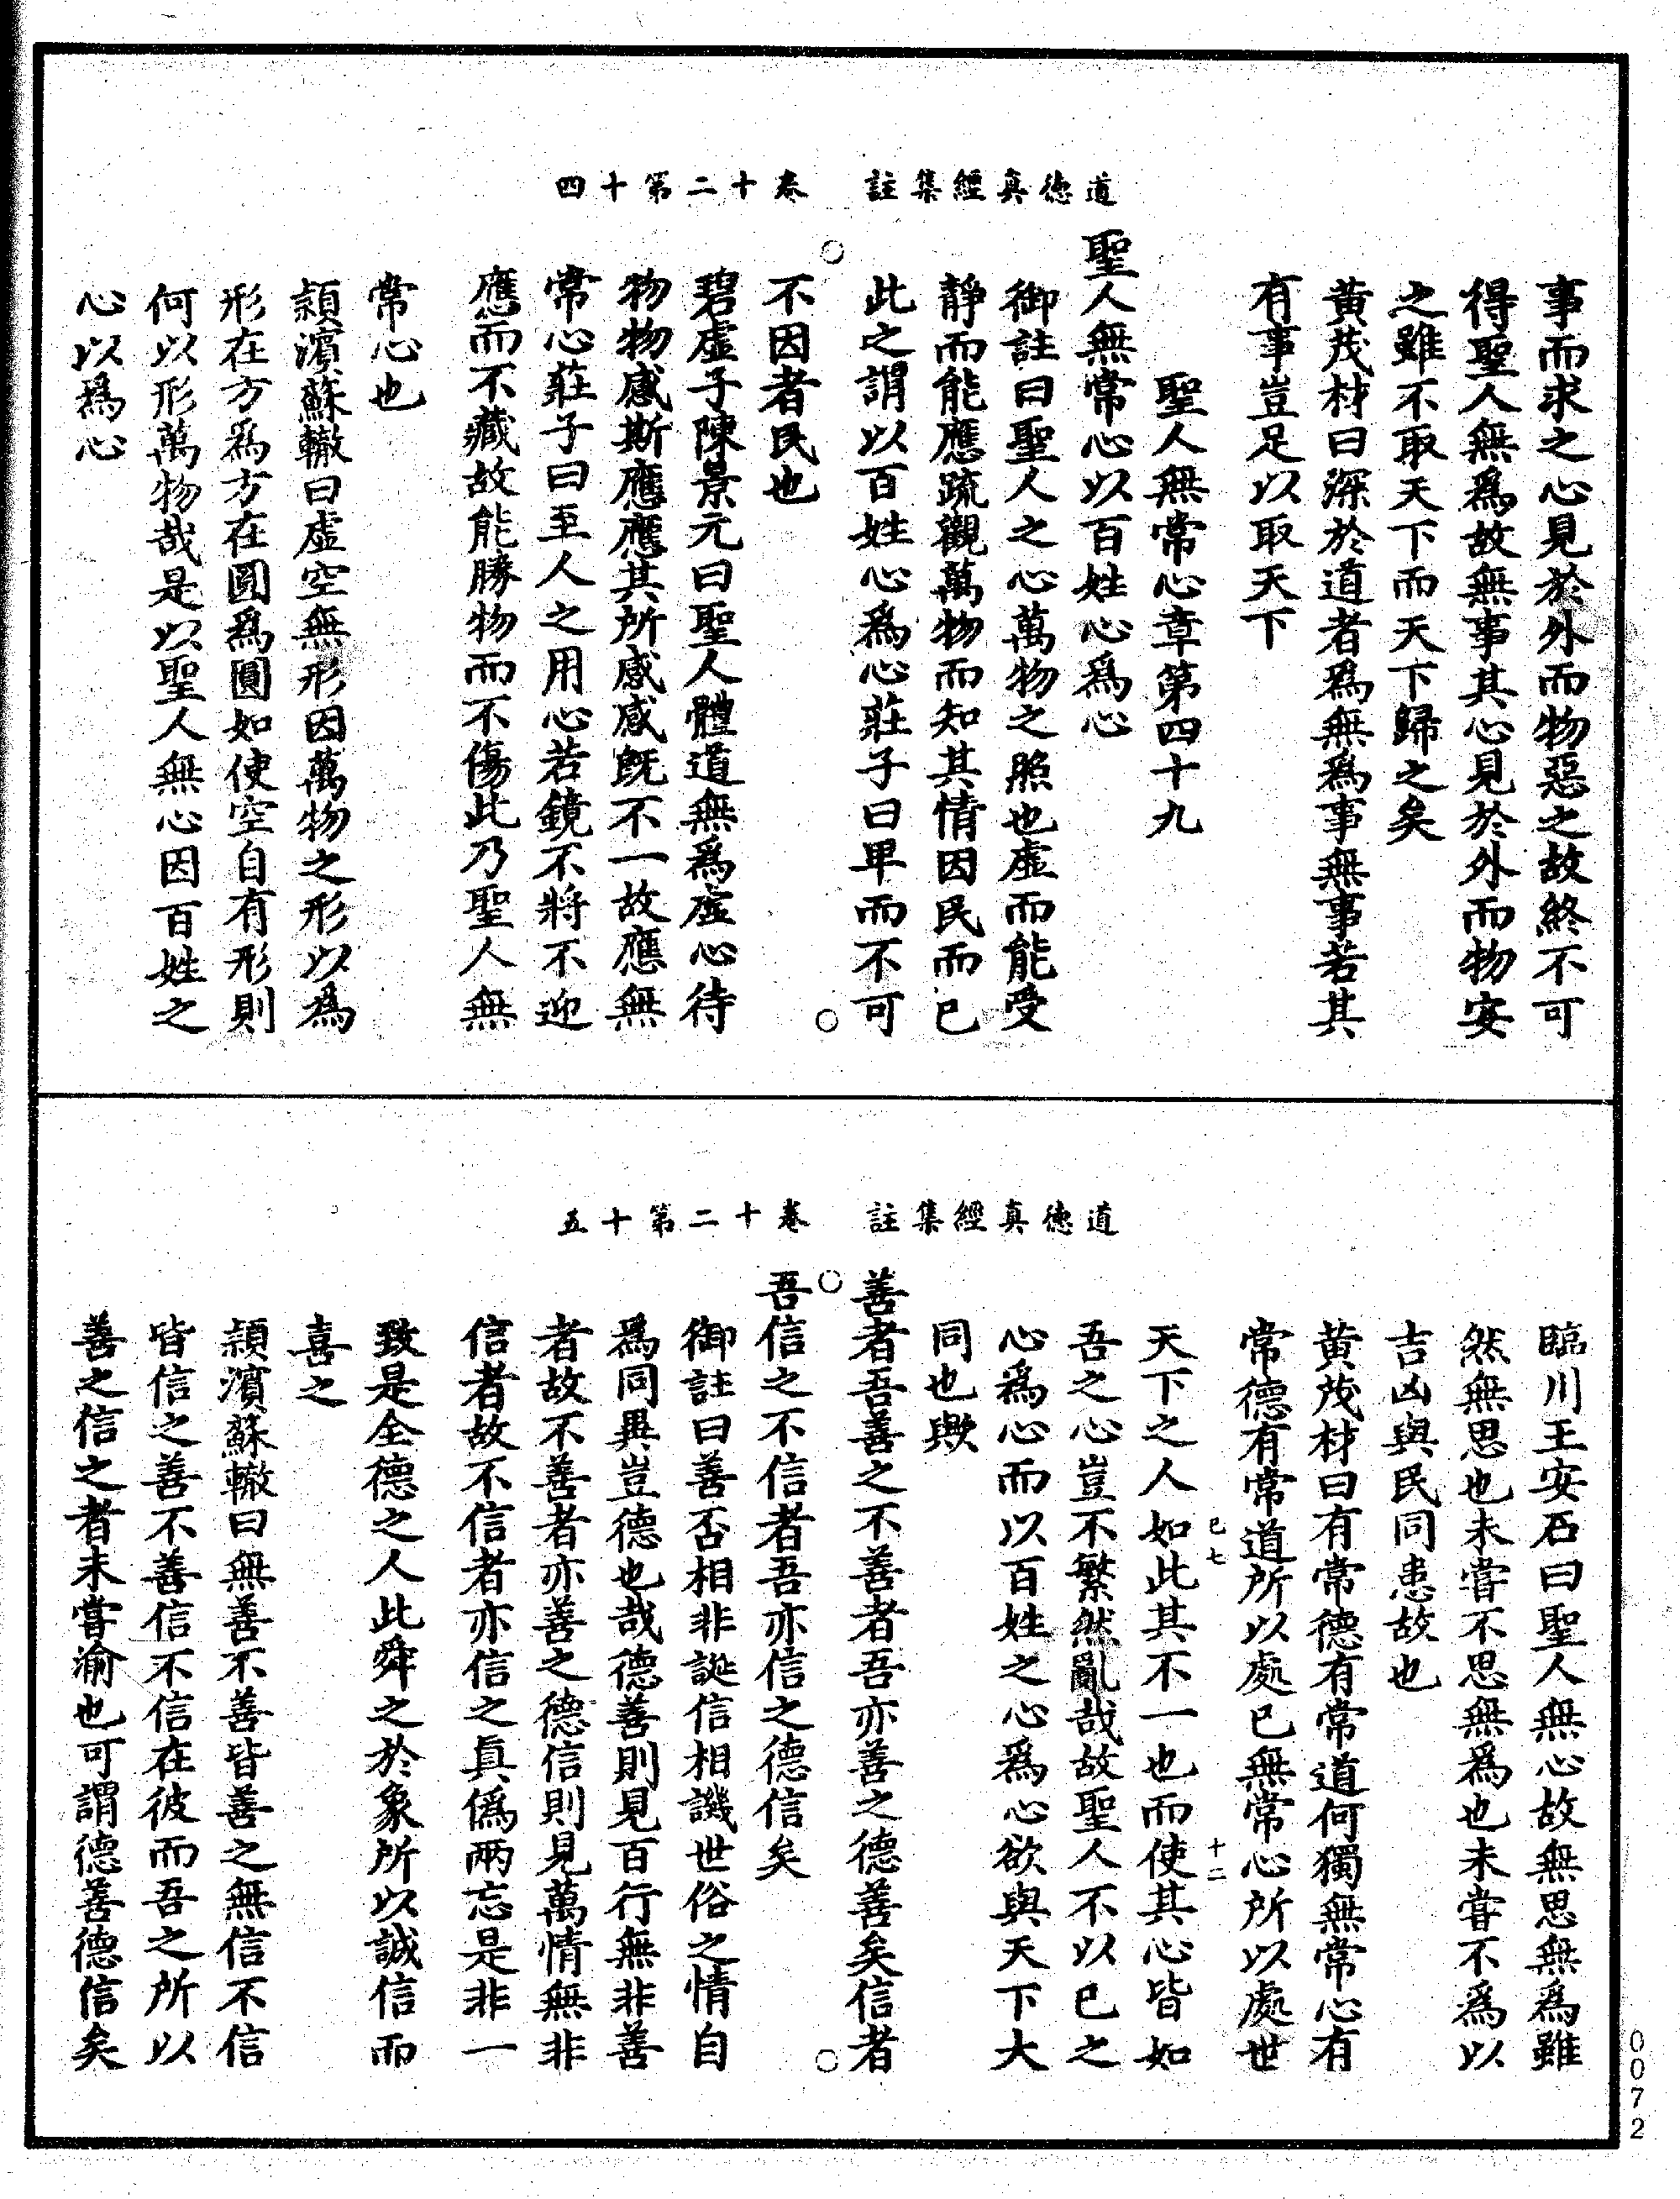 道德真經集註　卷十二第十四
事而求之心見於外而物惡之故終不可
得聖人無爲故無事其心見於外而物安
之雖不取天下而天下歸之矣
黃茂材曰深於道者爲無爲事無事若其
有事豈足以取天下
聖人無常心章第四十九
聖人無常心以百姓心爲心
御註曰聖人之心萬物之照也虛而能受
靜而能應疏觀萬物而知其情因民而已
此之謂以百姓心爲心莊子曰卑而不可
不因者民也
碧虛子陳景元曰聖人體道無爲虛心待
物物感斯應應其所感感既不一故應無
常心莊子曰至人之用心若鏡不將不迎
應而不藏故能勝物而不傷此乃聖人無
常心也
潁濱蘇轍曰虛空無形因萬物之形以爲
形在方爲方在圓爲圓如使空自有形則
何以形萬物哉是以聖人無心因百姓之
心以爲心
道德真經集註　卷十二第十五
臨川王安石曰聖人無心故無思無爲雖
然無思也未嘗不思無爲也未嘗不爲以
吉凶與民同患故也
黃茂材曰有常德有常道何獨無常心有
常德有常道所以處已無常心所以處世
已七　十二
天下之人如此其不一也而使其心皆如
吾之心豈不繁然亂哉故聖人不以已之
心爲心而以百姓之心爲心欲與天下大
同也歟
善者吾善之不善者吾亦善之德善矣信者
吾信之不信者吾亦信之德信矣
御註曰善否相非誕信相譏世俗之情自
爲同異豈德也哉德善則見百行無非善
者故不善者亦善之德信則見萬情無非
信者故不信者亦信之真僞兩忘是非一
致是全德之人此舜之於象所以誠信而
喜之
潁濱蘇轍曰無善不善皆善之無信不信
皆信之善不善信不信在彼而吾之所以
善之信之者未嘗渝也可謂德善德信矣
0072